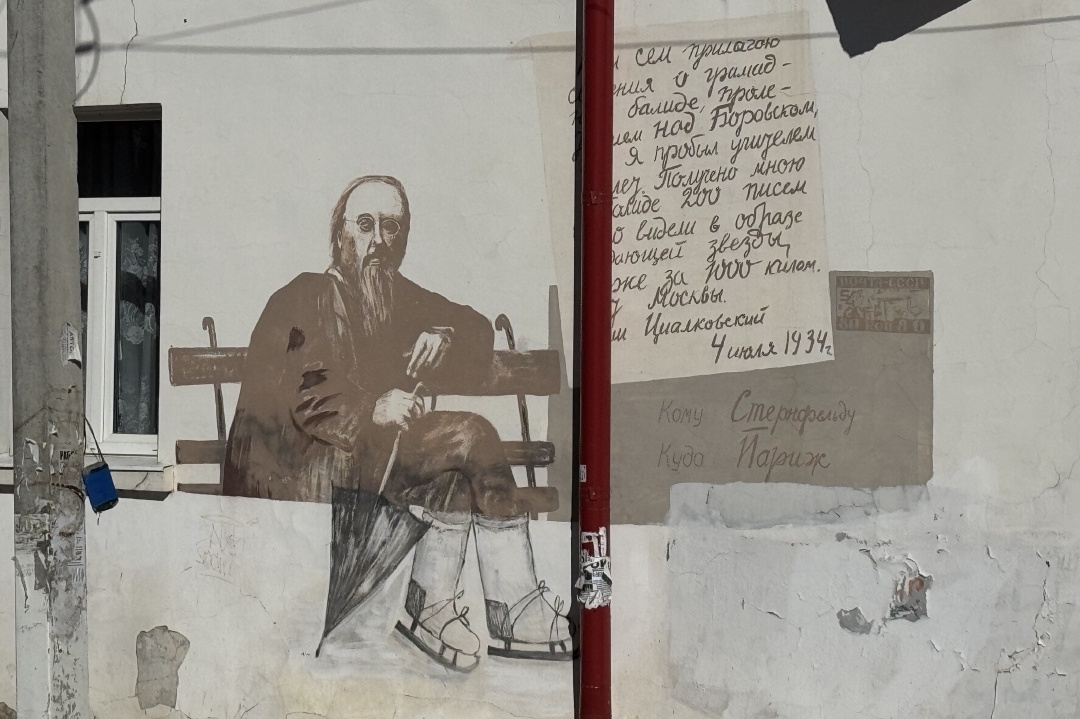 сем прилагаю
о грамад-
балиде, проле-
над Боровском,
я пробыл учителем
лет. Получено мною
200 писем
видели в образе
звезды,
за 1000 килом.
Москвы.
Циалковский
4 июля 1934г.
ПОЧТА СССР
Кому Стернфельду
Куда Париж